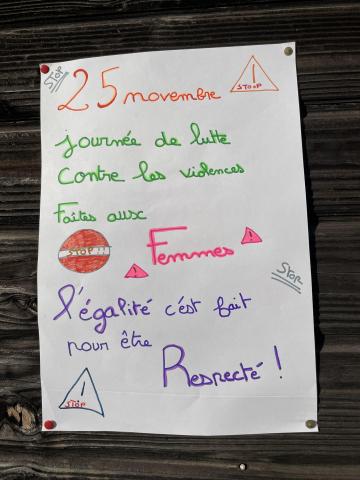 STOP
25 novembre
STOOP
journée de lutte
Contre les violences
Faites aux
STOP!!!
Femmes
STOP
l'égalité c'est fait
pour être
Respecté !
STOP